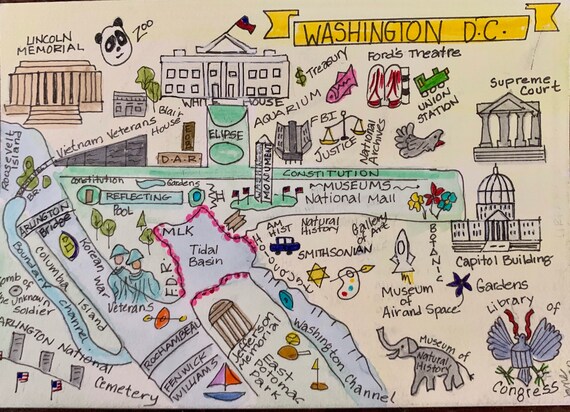 WASHINGTON D.C.
LINCOLN
MEMORIAL
ZOO
WHITE HOUSE
$ Treasury
Ford's Theatre
UNION
STATION
SUPREME
COURT
Blair
House
ELIPSE
AQUARIUM
FBI
JUSTICE
National
Archives
Roosevelt
Island
Vietnam Veterans
D.A.R.
WASHINGTON
MONUMENT
CONSTITUTION
Constitution Gardens
REFLECTING
Pool
MUSEUMS
National Mall
ARLINGTON
Bridge
Boundary Channel
Columbia Island
Korean War
Veterans
MLK
F.D.R.
Tidal
Basin
AM
HIST
Natural
History
Gallery
of Art
SMITHSONIAN
HOLOCAUST
BOTANIC
Gardens
Capitol Building
Museum
of
Air and Space
Tomb of
the Unknown
Soldier
ARLINGTON National
Cemetery
ROCHAMBEAU
FENWICK
WILLIAMS
Jefferson
Memorial
East
Potomac
Park
Washington Channel
Museum of
Natural
History
Library of
Congress